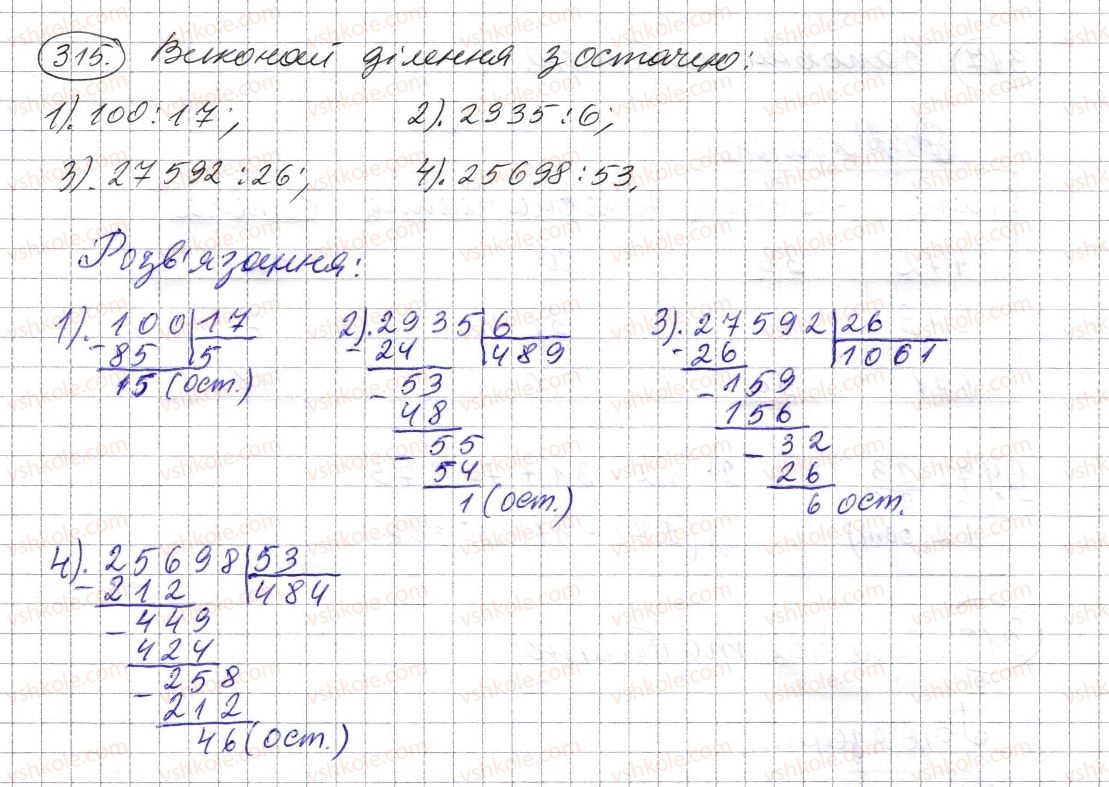 315. Виконай ділення з остачею:
1). 100:17; 2). 2935:6;
3). 27592:26; 4). 25698:53.
Розв'язання:
1). 100 17
- 85 5
15 (ост.)
2). 2935 6
- 24 489
- 53
48
- 55
54
1 (ост.)
3). 27592 26
- 26 1061
- 159
156
- 32
26
6 ост.
4). 25698 53
- 212 484
- 449
424
- 258
212
46 (ост.)
vshkole.com